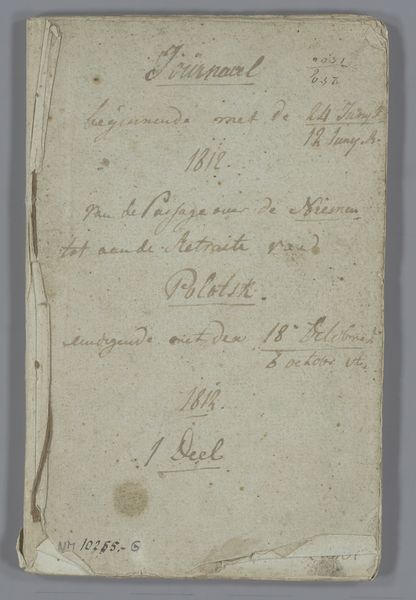 Journaal
beginnende met de 24 Juny
12 Juny
1812.
van de Passage over de Niemen
tot aan de Retraite van
Polotsk.
eindigende met den 18
6 octobr
1812.
1 Deel
NM 10255.-6